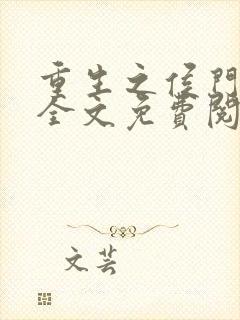 重生之侯門
全文免費閱
文芸